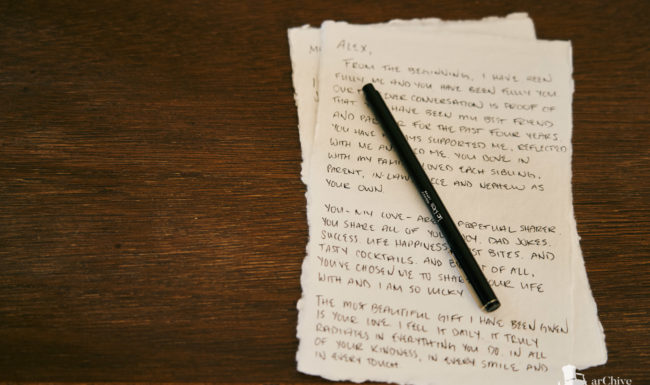 ALEX,
FROM THE BEGINNING, I HAVE BEEN
FULLY ME AND YOU HAVE BEEN FULLY YOU
OUR OVER CONVERSATION IS PROOF OF
THAT HAVE BEEN MY BEST FRIEND
AND FOR THE PAST FOUR YEARS.
YOU HAVE SUPPORTED ME, REFLECTED
WITH ME ME. YOU DOVE IN
WITH MY LOVED EACH SIBLING,
PARENT, AND NEPHEW AS
YOUR OWN.
YOU - MY LOVE - PERPETUAL SHARER.
YOU SHARE ALL OF JOY. DAD JOKES.
SUCCESS. LIFE HAPPINESS. BITES. AND
TASTY COCKTAILS. AND OF ALL,
YOU'VE CHOSEN ME TO YOUR LIFE
WITH AND I AM SO LUCKY
THE MOST BEAUTIFUL GIFT I HAVE BEEN GIVEN
IS YOUR LOVE. I FEEL IT DAILY. IT TRULY
RADIATES IN EVERYTHING YOU DO. IN ALL
OF YOUR KINDNESS, IN EVERY SMILE AND
IN EVERY TOUCH.
arChive